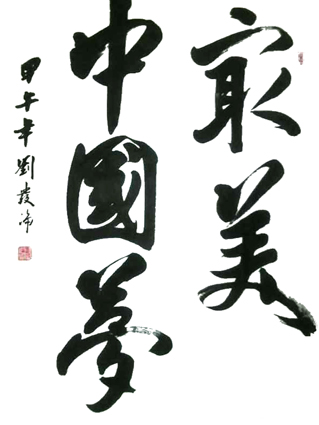 最美
中國夢
甲午年劉發常